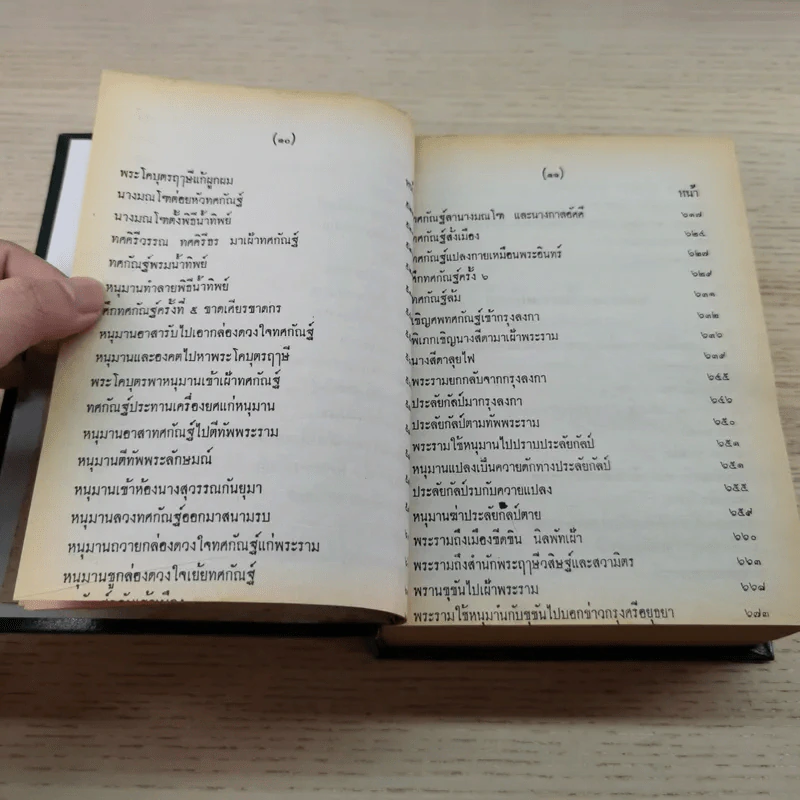 (๑๐)
พระโคบุตรฤๅษีแก้ผูกผม
นางมณโฑต่อยหัวทศกัณฐ์
นางมณโฑตั้งพิธีน้ำทิพย์
ทศคิรีวรรณ ทศคิรีธร มาเฝ้าทศกัณฐ์
ทศกัณฐ์พรมน้ำทิพย์
หนุมานทำลายพิธีน้ำทิพย์
ศึกทศกัณฐ์ครั้งที่ ๕ ขาดเศียรขาดกร
หนุมานอาสารับไปเอากล่องดวงใจทศกัณฐ์
หนุมานและองคตไปหาพระโคบุตรฤๅษี
พระโคบุตรพาหนุมานเข้าเฝ้าทศกัณฐ์
ทศกัณฐ์ประทานเครื่องยศแก่หนุมาน
หนุมานอาสาทศกัณฐ์ไปตีทัพพระราม
หนุมานตีทัพพระลักษมณ์
หนุมานเข้าห้องนางสุวรรณกันยุมา
หนุมานลวงทศกัณฐ์ออกมาสนามรบ
หนุมานถวายกล่องดวงใจทศกัณฐ์แก่พระราม
หนุมานชูกล่องดวงใจเย้ยทศกัณฐ์
(๑๑)
หน้า
ทศกัณฐ์ลานางมณโฑ และนางกาลอัคคี
ทศกัณฐ์สั่งเมือง ๖๒๔
ทศกัณฐ์แปลงกายเหมือนพระอินทร์ ๖๒๗
ศึกทศกัณฐ์ครั้ง ๖ ๖๒๙
ทศกัณฐ์ล้ม ๖๓๑
เชิญศพทศกัณฐ์เข้ากรุงลงกา ๖๓๒
พิเภกเชิญนางสีดามาเฝ้าพระราม ๖๓๖
นางสีดาลุยไฟ ๖๓๙
พระรามยกกลับจากกรุงลงกา ๖๔๕
ประลัยกัลป์มากรุงลงกา ๖๔๖
ประลัยกัลป์ตามทัพพระราม ๖๕๐
พระรามใช้หนุมานไปปราบประลัยกัลป์ ๖๕๑
หนุมานแปลงเป็นควายดักทางประลัยกัลป์ ๖๕๓
ประลัยกัลป์รบกับควายแปลง ๖๕๕
หนุมานฆ่าประลัยกัลป์ตาย ๖๕๙
พระรามถึงเมืองขีดขิน นิลพัทเฝ้า ๖๖๐
พระรามถึงสำนักพระฤๅษีวสิษฐ์และสวามิตร ๖๖๓
พรานขุขันไปเฝ้าพระราม ๖๖๘
พระรามใช้หนุมานกับขุขันไปบอกข่าวกรุงศรีอยุธยา ๖๗๓